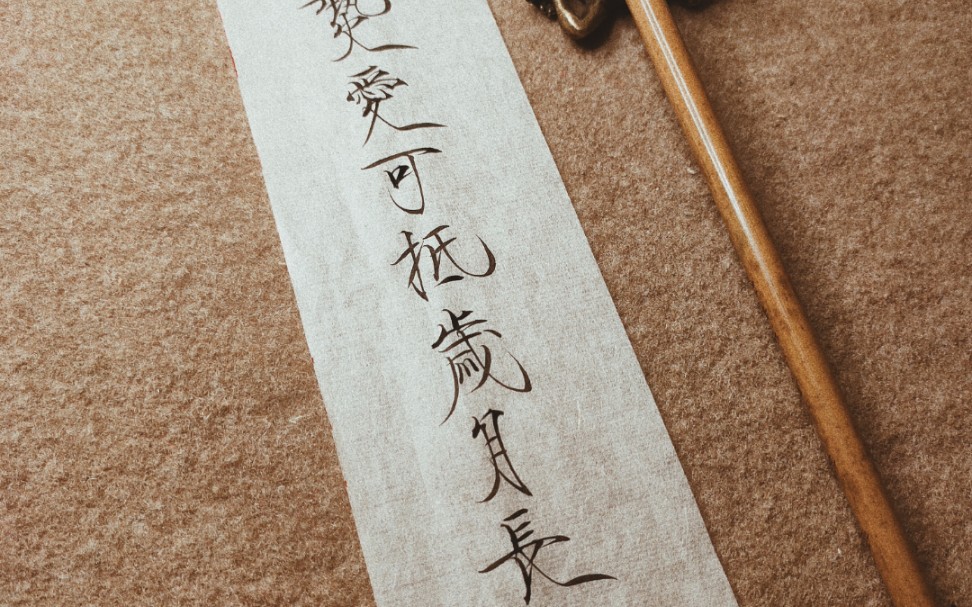 熱愛可抵歲月長